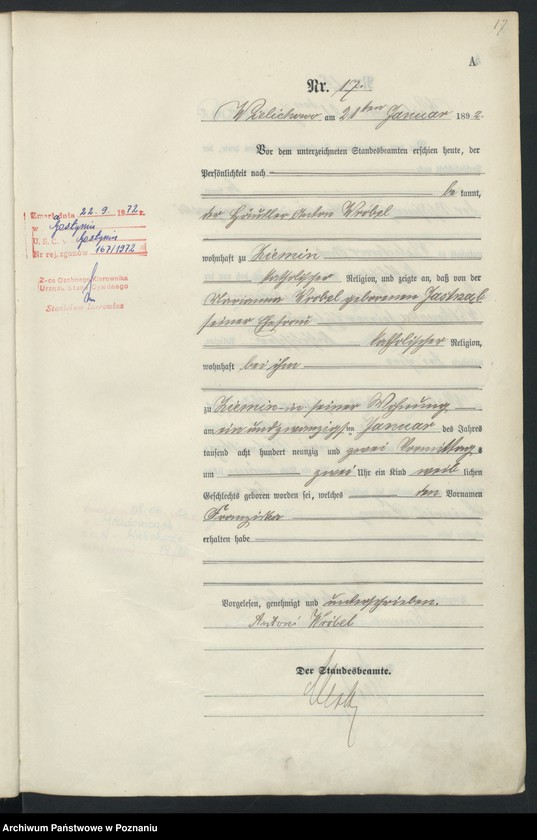 17
A
Nr. 17.
Wielichowo am 21ten Januar 1892.
Vor dem unterzeichneten Standesbeamten erschien heute, der
Persönlichkeit nach
be kannt,
der Häusler Anton Wrobel
wohnhaft zu Ziemin
katholischer Religion, und zeigte an, daß von der
Marianna Wrobel geborenen Jastrzab
seiner Ehefrau
katholischer Religion,
wohnhaft bei ihm
zu Ziemin in seiner Wohnung
am ein und zwanzigsten Januar des Jahres
tausend acht hundert neunzig und zwei Vormittags
um zwei Uhr ein Kind weib lichen
Geschlechts geboren worden sei, welches den Vornamen
Franziska
erhalten habe
Vorgelesen, genehmigt und unterschrieben.
Antoni Wróbel
Der Standesbeamte.
Zmarł dnia 22.9. 1972 r.
w Gostyniu
U. S. C. Gostynin
Nr rej. zgonów 167/1972
Z-ca Kierownika
Urzędu Stanu Cywilnego
Archiwum Państwowe w Poznaniu